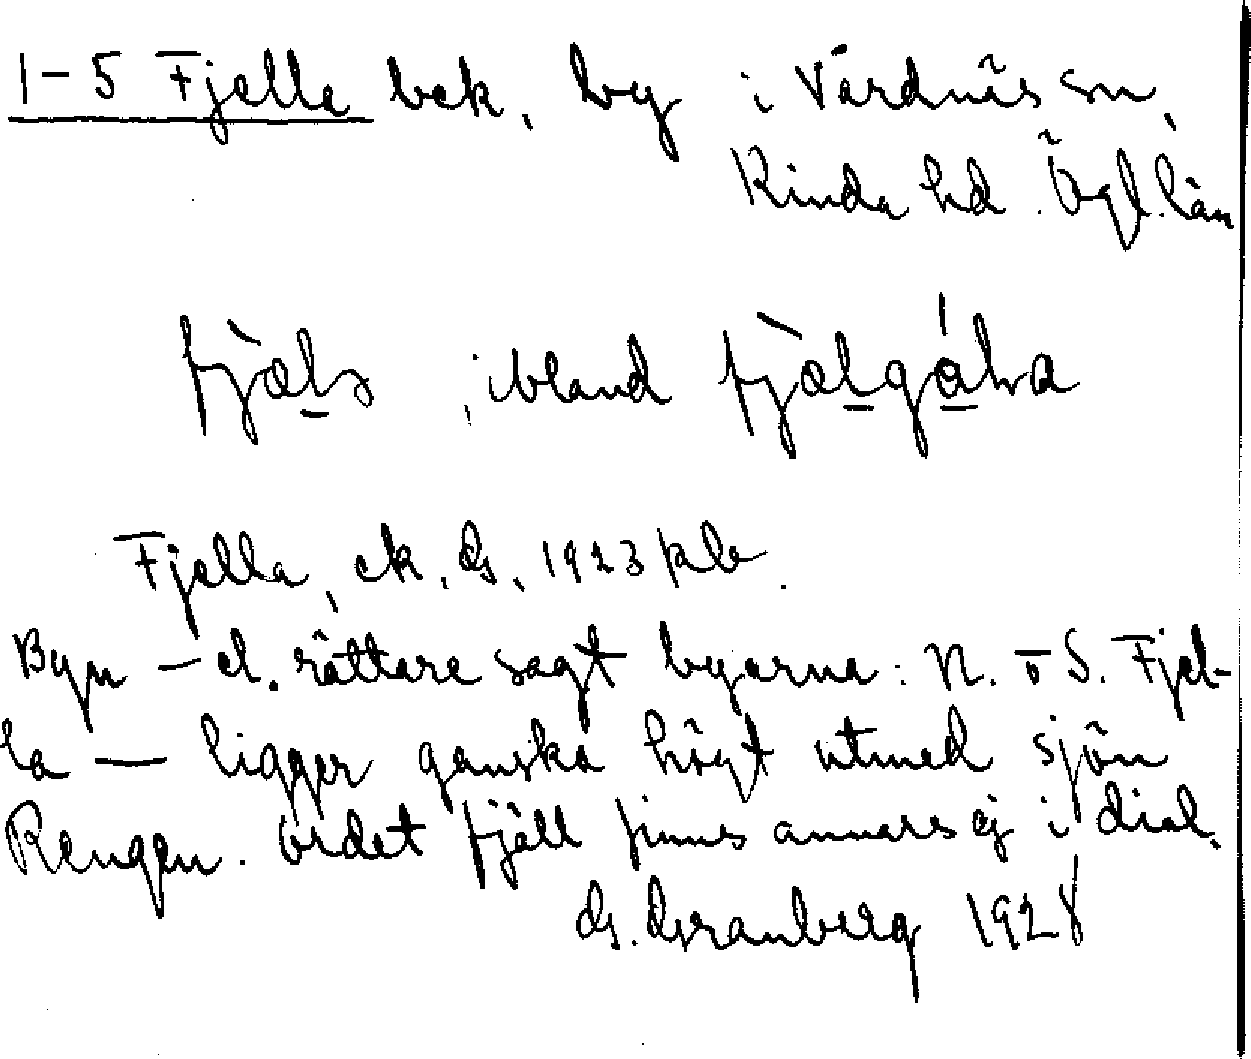 1-5 Fjella bek. by i Vårdnäs sn,
Kinda hd. Ögl. län
fjæla, ibland fjælgåɷa
Fjella, ek. G. 1923 kb.
Byn — el. rättare sagt byarna: N. o S. Fjel-
la — ligger ganska högt utmed sjön
Rengen. Ordet fjäll finnes annars ej i dial.
G. Granberg 1928